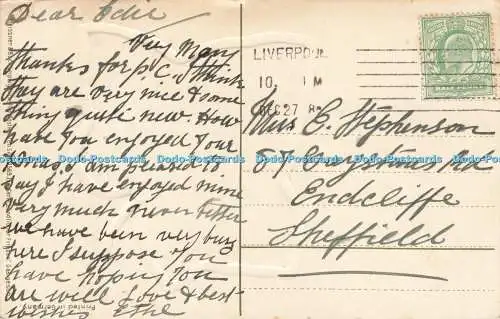 Dear Edie
Very Many
thanks for p.C. I think
they are very nice & some
thing quite new. How
have you enjoyed your
Xmas. I am pleased to
say I have enjoyed mine
very much never better
we have been very busy
here I suppose you
have hoping you
are will Love & best
wishes
LIVERPOOL
10. M
DEC 27
Miss E. Stephenson
87
Rd
Endcliffe
Sheffield
Printed in Germany
Dodo-Postcards Dodo-Postcards Dodo-Postcards Dodo-Postcards Dodo-Postcards